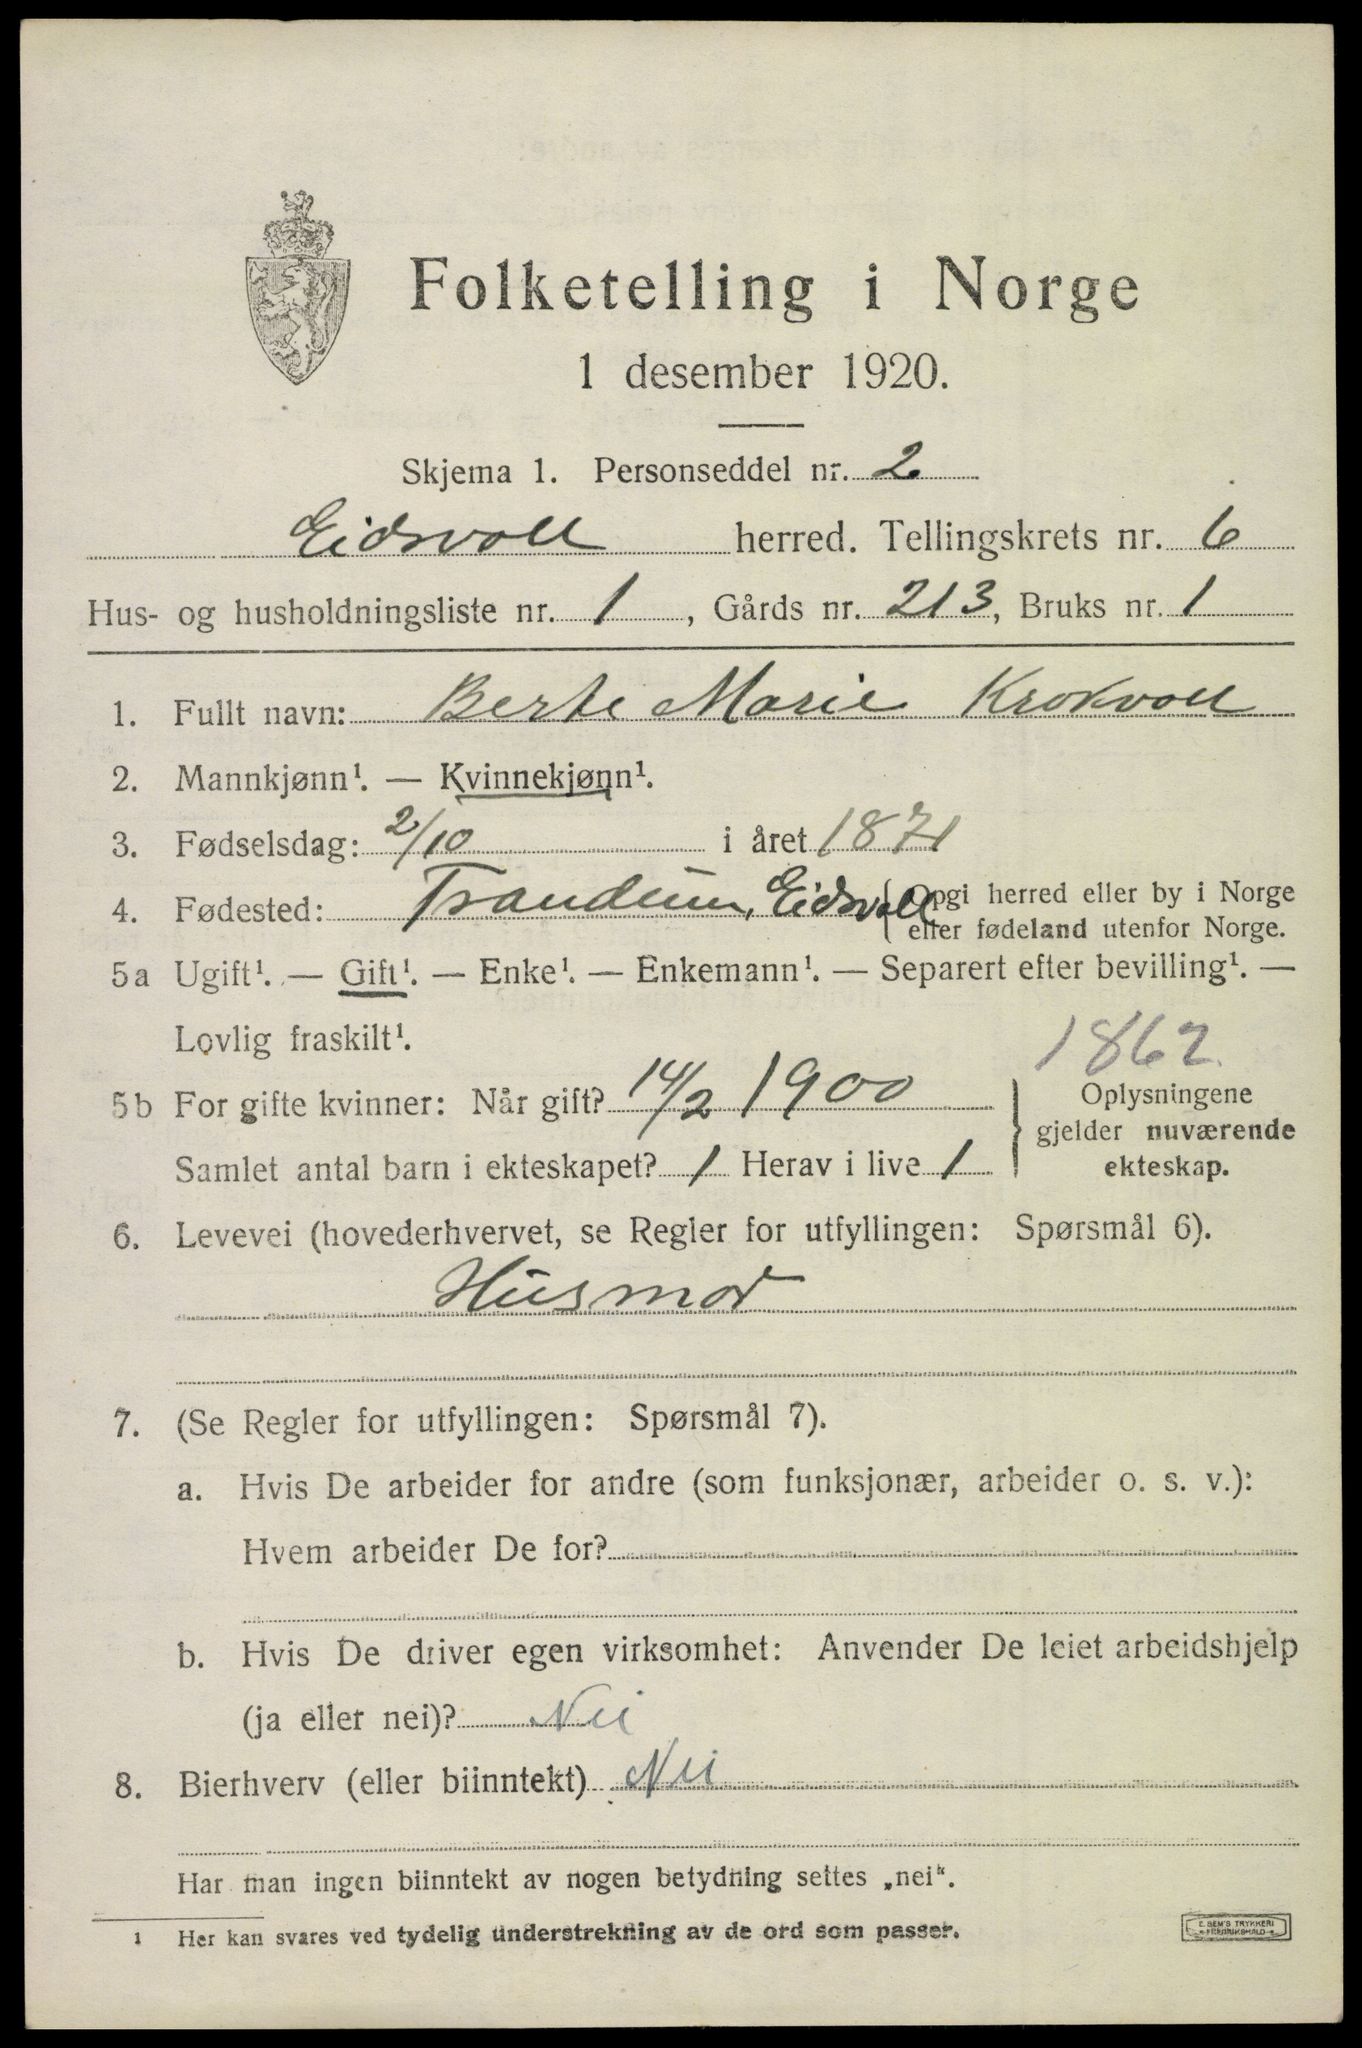 Folketelling i Norge
1 desember 1920.
Skjema 1. Personseddel nr. 2
Eidsvoll herred. Tellingskrets nr. 6
Hus- og husholdningsliste nr. 1, Gårds nr. 213, Bruks nr. 1
1. Fullt navn: Berte Marie Krokvoll
2. Mannkjønn¹. — Kvinnekjønn¹.
3. Fødselsdag: 2/10 i året 1871
4. Fødested: Trandum, Eidsvoll {Opgi herred eller by i Norge
eller fødeland utenfor Norge.
5a Ugift¹. — Gift¹. — Enke¹. — Enkemann¹. — Separert efter bevilling¹. —
Lovlig fraskilt¹.
1862
5b For gifte kvinner: Når gift? 14/2 1900
Samlet antal barn i ekteskapet? 1 Herav i live 1
} Oplysningene
gjelder nuværende
ekteskap.
6. Levevei (hovederhvervet, se Regler for utfyllingen: Spørsmål 6).
Husmor
7. (Se Regler for utfyllingen: Spørsmål 7).
a. Hvis De arbeider for andre (som funksjonær, arbeider o. s. v.):
Hvem arbeider De for?
b. Hvis De driver egen virksomhet: Anvender De leiet arbeidshjelp
(ja eller nei)? Nei
8. Bierhverv (eller biinntekt) Nei
Har man ingen biinntekt av nogen betydning settes „nei“.
1 Her kan svares ved tydelig understrekning av de ord som passer.
E. SEM'S TRYKKERI
FREDRIKSHALD